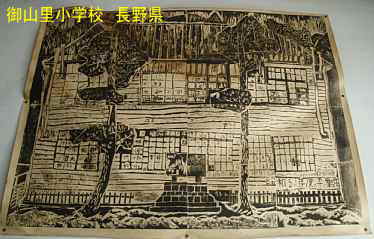 御山里小学校　長野県